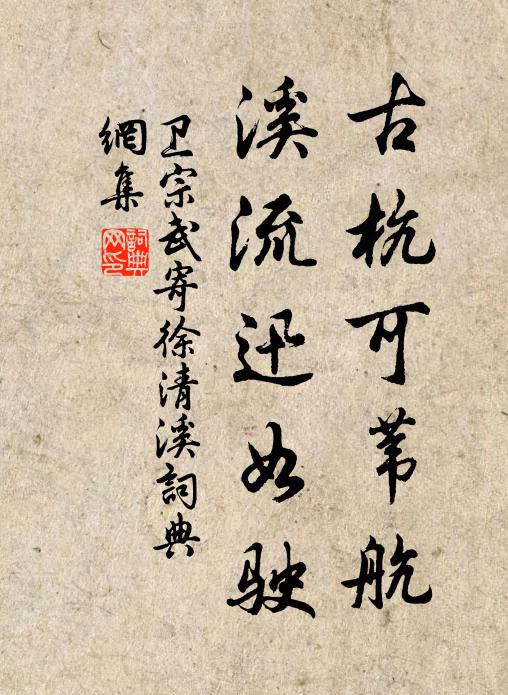 古杭可苇航
溪流迅如駛
卫宗武寄徐清溪詞典
網集
詞典
网印